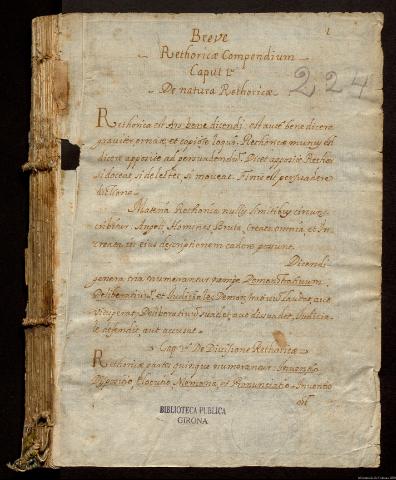 1
Breve
Rethoricæ Compendium
Caput 1.
De natura Rethoricæ
224
Rethorica est Ars bene dicendi. est autē bene dicere
graviter ornatè, et copiosè loqui. Rethoricæ munus est
dicere appositè ad persuadendū. Dicet appositè Rethor
si doceat, si delectet, si moveat. Finis est persuadere
dictione.
Materia Rethoricæ nullis limitibus circuns
cribitur. Angeli, Homines, Bruta, Creata omnia, et In
creata in eius descriptionem cadere possunt.
Dicendi
genera tria numerantur nempe Demonstrativum,
Deliberativū, et Judiciale. Demonstrativū laudat, aut
vituperat, Deliberativū suadet, aut dissuadet, Judicia-
le defendit, aut accusat.
Cap. 2. De Divisione Rethoricæ
Rethoricæ partes quinque numerantur: Inventio
Dispositio, Elocutio, Memoria, et Pronunciatio. Inventio
est
BIBLIOTECA PUBLICA
GIRONA